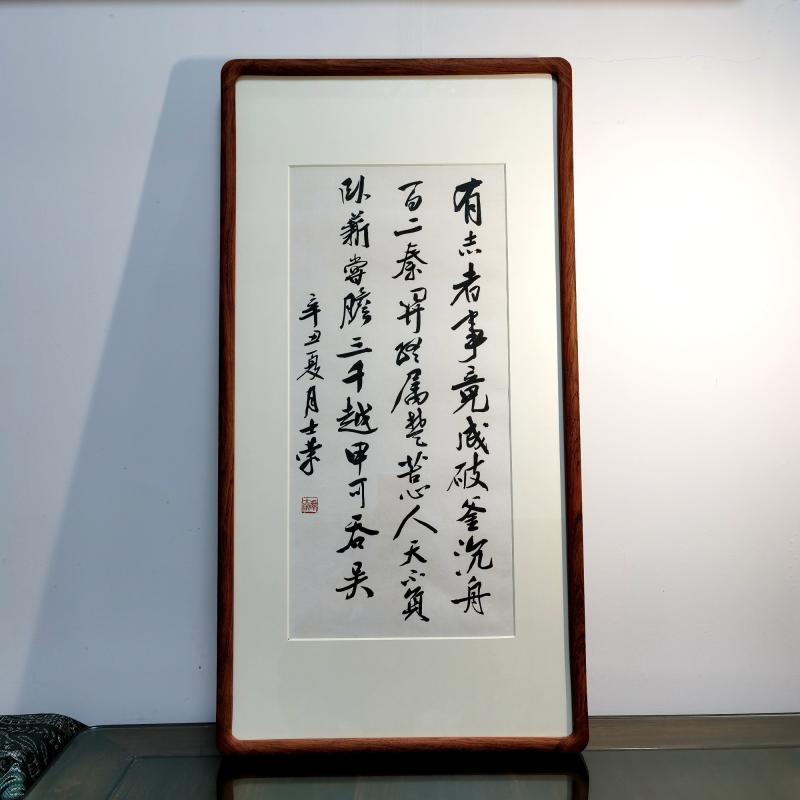 有志者事竟成破釜沉舟
百二秦関终属楚苦心人天不负
卧薪尝胆三千越甲可吞吴
辛丑夏月士荣